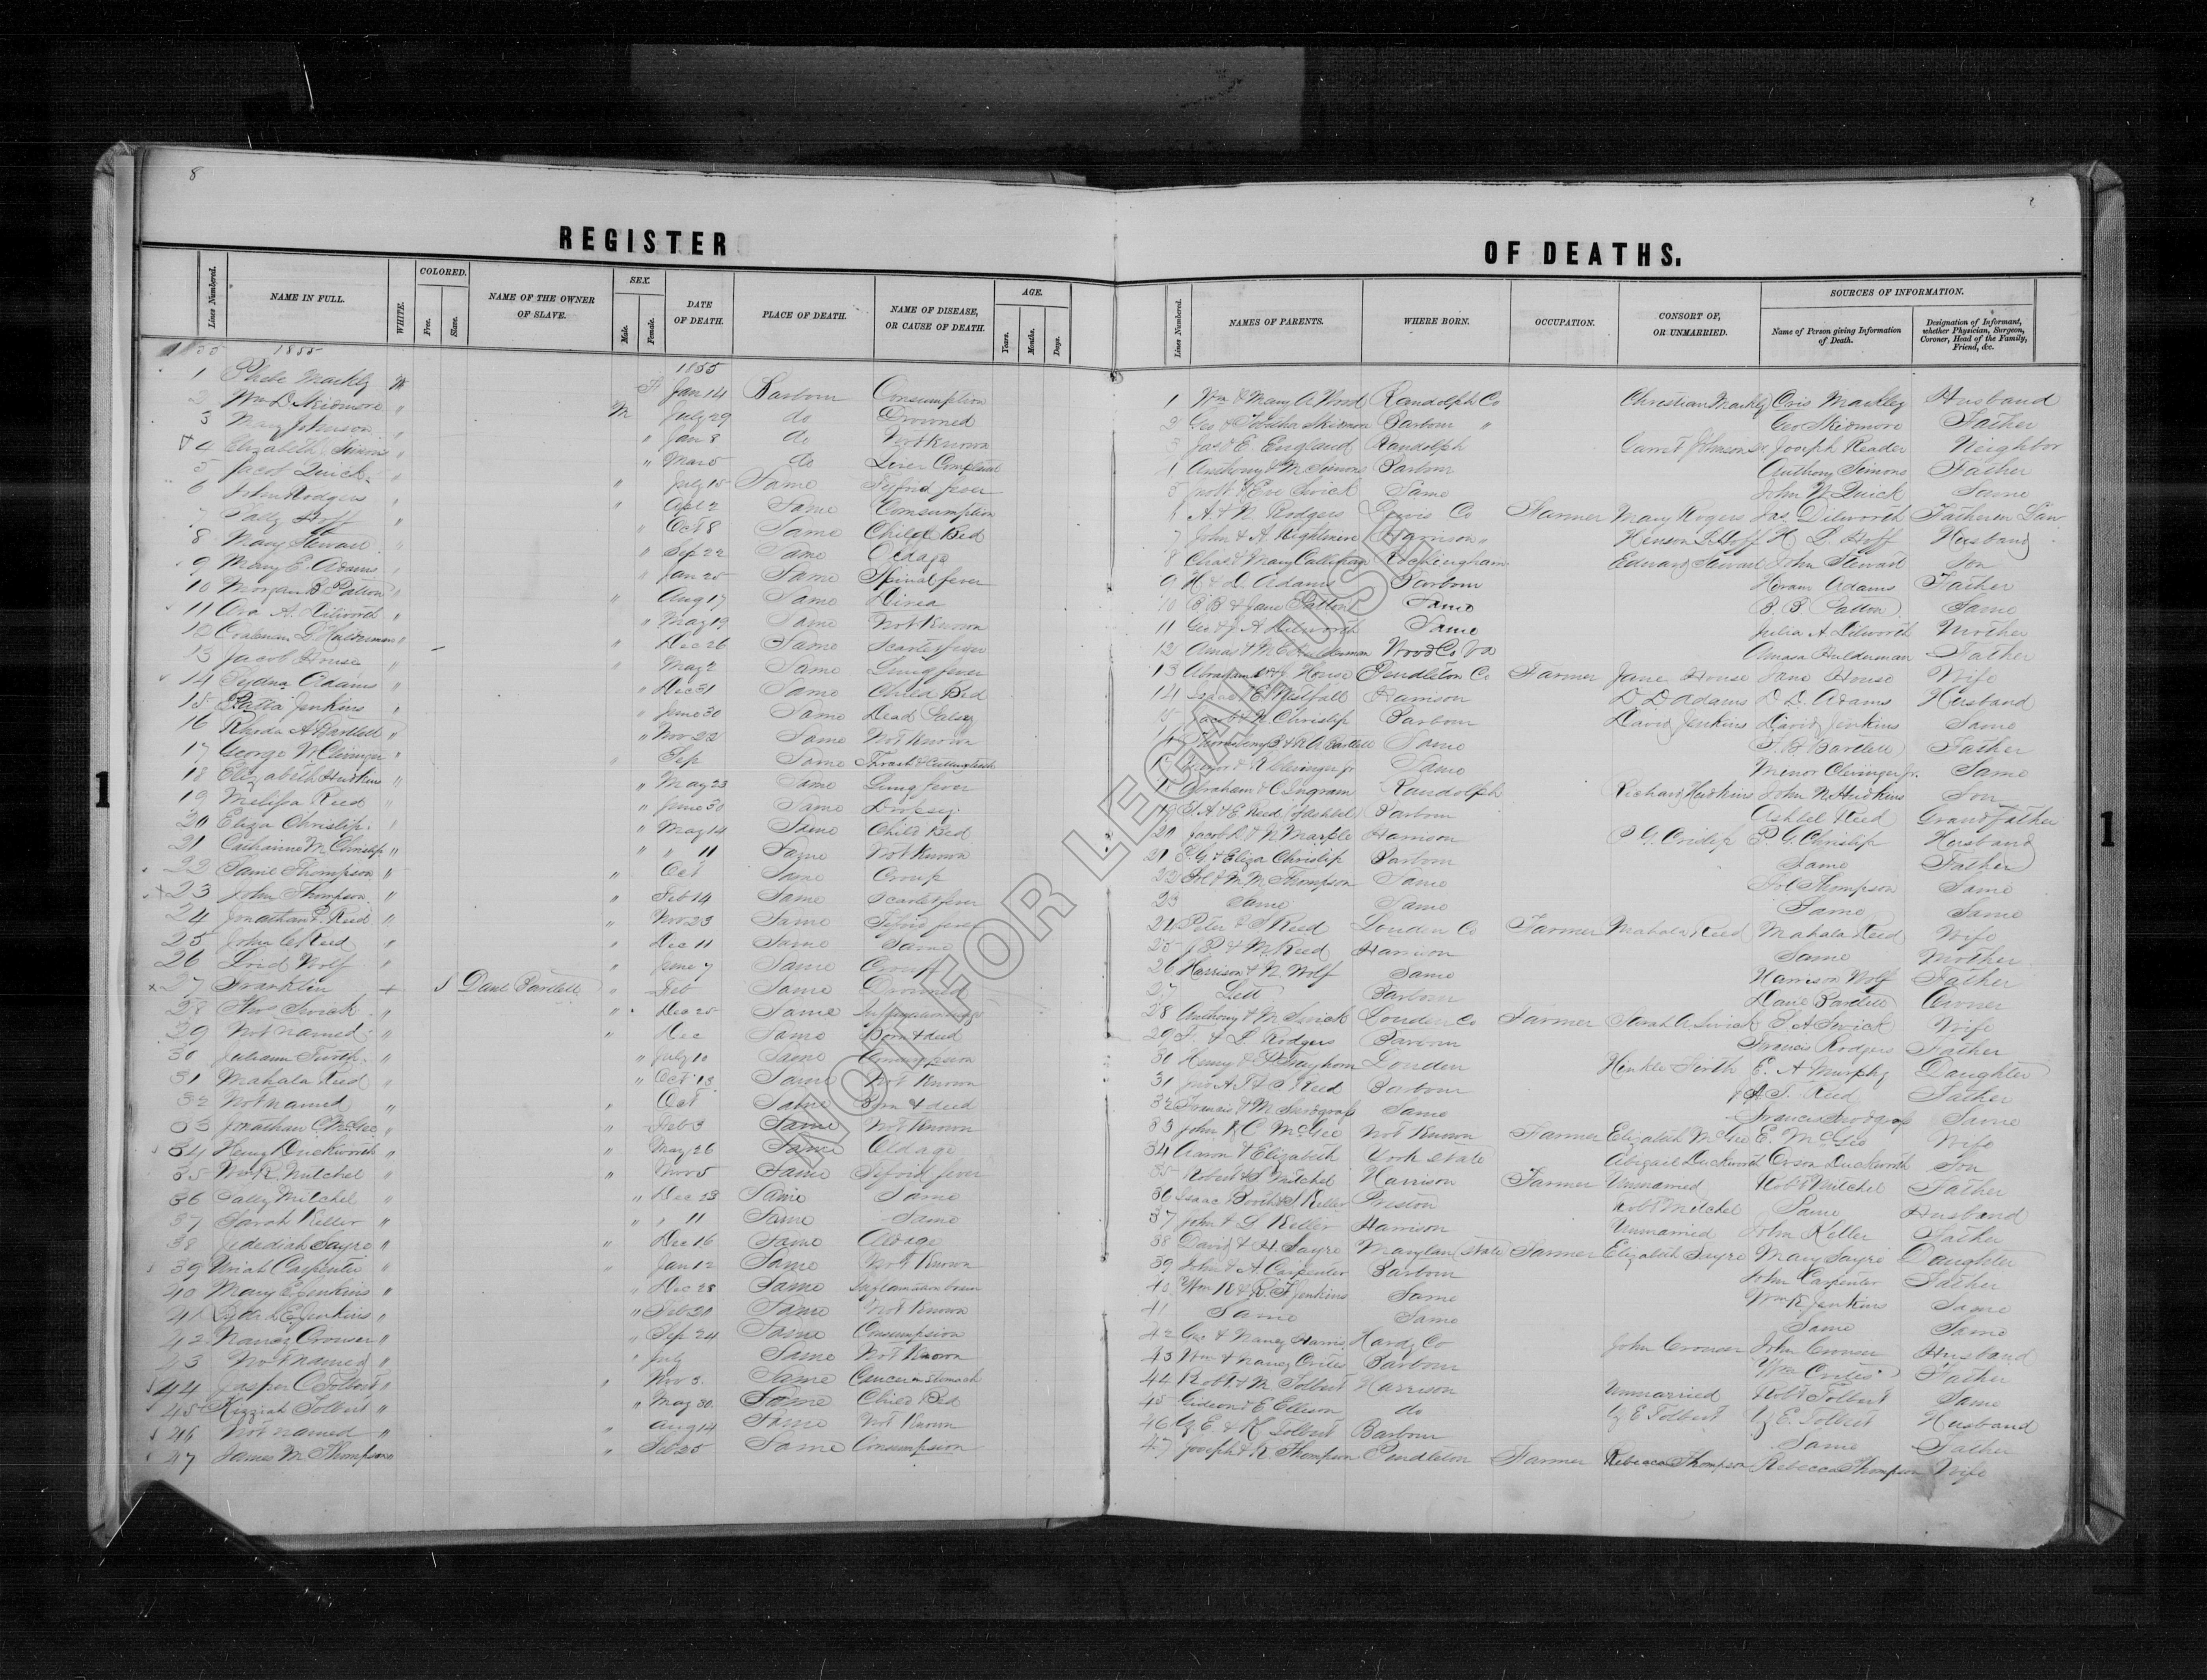 8
REGISTER
Lines Numbered.
NAME IN FULL.
WHITE.
COLORED.
Free.
Slave.
NAME OF THE OWNER OF SLAVE.
SEX.
Male.
Female.
DATE OF DEATH.
PLACE OF DEATH.
NAME OF DISEASE, OR CAUSE OF DEATH.
AGE.
Years.
Months.
Days.
1855 1855
1 Phebe Markly W F Jan 14 Barbour Consumption
2 Wm D. Skidmore " M July 29 do Drowned
3 Mary Johnson " " Jan 8 do Not Known
4 Elizabeth Simons " " Mar 5 do Liver Complaint
5 Jacob Quick " " July 15 Same Tifoid fever
6 John Rodgers " " Apl 2 Same Comsumption
7 Sally Hoff " " Oct 8 Same Child Bed
8 Mary Stewart " " Sep 22 Same Oldage
9 Mary E. Adams " " Jan 25 Same Spinal fever
10 Morgan B Patton " " Aug 17 Same
11 A. Dilworth " " May 19 Same Not Known
12 Coaleman D Halderman " " Dec 26 Same Scarlet fever
13 Jacob House " " May 2 Same Lung fever
14 Sydna Adams " " Dec 31 Same Child Bed
15 Jenkins " " June 30 Same Dead Palsey
16 Rhoda A Bartlett " " Nov 22 Same Not Known
17 George W. Clevinger " " Sep Same Thrash & Cutting teeth
18 Elizabeth Hudkins " " May 23 Same Lung fever
19 Melissa Reed " " June 30 Same Dropsey
20 Eliza Chrislip " " May 14 Same Child Bed
21 Catharine M Chrislip " " " 11 Same Not Known
22 Thompson " " Oct Same Croup
23 John Thompson " " Feb 14 Same Scarlet fever
24 Jonathan P. Reed " " Nov 23 Same Tifoid fever
25 John C Reed " " Dec 11 Same Same
26 Loid Wolf " " June 7 Same Croup
27 Franklin + S Danl Bartlett " Feb Same Drowned
28 Swick " " Dec 25 Same
29 Not named " " Dec Same Born & died
30 Juliann Firth " " July 10 Same Consumpsion
31 Mahala Reed " " Oct 13 Same Not Known
32 Not named " " Oct Same Born & died
33 Jonathan C McGee " " Feb 3 Same Not Known
34 Henry Duckworth " " May 26 Same Oldage
35 Wm R. Mitchel " " Nov 5 Same Tifoid fever
36 Sally Mitchel " " Dec 23 Same Same
37 Sarah Keller " " " 11 Same Same
38 Jedediah Sayre " " Dec 16 Same Oldage
39 Uriah Carpenter " " Jan 12 Same Not Known
40 Mary E Jenkins " " Dec 28 Same Inflamation brain
41 E Jenkins " " Feb 20 Same Not Known
42 Nancy Crouser " " Sep 24 Same Consumpsion
43 Not named " " July Same Not Known
44 Jasper C Tolbert " " Nov 3 Same Cancer on Stomach
45 Kizziah Tolbert " " May 30 Same Child Bed
46 Not named " " Aug 14 Same Not Known
47 James M Thompson " Feb 25 Same Consumpsion
OF DEATHS.
Lines Numbered.
NAMES OF PARENTS.
WHERE BORN.
OCCUPATION.
CONSORT OF, OR UNMARRIED.
SOURCES OF INFORMATION.
Name of Person giving Information of Death.
Designation of Informant, whether Physician, Surgeon, Coroner, Head of the Family, Friend, &c.
1 Wm & Mary A Wood Randolph Co Christian Markley Cris Markley Husband
2 Geo & Tabitha Skidmore Barbour " Geo Skidmore Father
3 Jas & E. England Randolph Garret Johnson Joseph Reader Neighbor
4 Anthony & M Simons Barbour Anthony Simons Father
5 & Eve Swick Same John W Quick Same
6 A & N Rodgers Lewis Co Farmer Mary Rogers Jas Dilworth Father in Law
7 John & A. Rightmire Harrison " Hinson L Hoff H L Hoff Husband
8 Chas & Mary Callihan Rockingham Edward Stewart John Stewart Son
9 H & L Adams Barbour Hiram Adams Father
10 B B & Jane Patton Same B B Patton Same
11 Geo & J A Dilworth Same Julia A Dilworth Mother
12 Amas & M E Halderman Wood Co Va Amasa Halderman Father
13 Abraham & J House Pendleton Co Farmer Jane House Jane House Wife
14 Isaac & E Westfall Harrison D D Adams D D. Adams Husband
15 Jacob & N Chrislip Barbour David Jenkins David Jenkins Same
16 Thornsberry B & R A Bartlett Same T. B Bartlett Father
17 Minor & R Clevinger Jr Same Minor Clevinger Jr. Same
18 Abraham & C Ingram Randolph Richard Hudkins John N Hudkins Son
19 Barbour Ashbel Reed Grandfather
20 Jacob D & N Marple Harrison P G. Crislip P G. Chrislip Husband
21 P. G & Eliza Chrislip Barbour Same Father
22 Sol & M M Thompson Same Sol Thompson Same
23 Same Same Same Same
24 Peter & S Reed Louden Co Farmer Mahala Reed Mahala Reed Wife
25 J P & M. Reed Harrison Same Mother
26 Harrison & N. Wolf Same Harrison Wolf Father
27 Lett Barbour Danl Bartlett Owner
28 Anthony & M Swick Louden Co Farmer Sarah A Swick S A Swick Wife
29 F. & L Rodgers Barbour Francis Rodgers Father
30 Henry & P Louden Hinkle Firth E. A Murphy Daughter
31 Jno A T & S Reed Barbour J A T. Reed Father
32 Francis & M Snodgrass Same Francis Snodgrass Same
33 John & C McGee Not Known Farmer Elizabeth McGee E. McGee Wife
34 Aaron & Elizabeth York State Abigail Duckworth Orson Duckworth Son
35 Robert & S Mitchel Harrison Farmer Unmarried Robt Mitchel Father
36 Isaac Booth & S Keller Preston Robt Mitchel Same Husband
37 John & L Keller Harrison Unmarried John Keller Father
38 David & H. Sayre Marylan State Farmer Elizabeth Sayre Mary Sayre Daughter
39 John & A. Carpenter Barbour John Carpenter Father
40 Wm R & R. T Jenkins Same Wm R. Jenkins Same
41 Same Same Same Same
42 Geo & Nancy Harris Hardy Co John Crouser John Crouser Husband
43 Wm & Nancy Crites Barbour Wm Crites Father
44 Robt & M Tolbert Harrison Unmarried Robt Tolbert Same
45 Gideon & E Ellison do E Tolbert E. Tolbert Husband
46 E. & K Tolbert Barbour Same Father
47 Joseph & R. Thompson Pendleton Farmer Rebecca Thompson Rebecca Thompson Wife
1
1
NOT FOR LEGAL USE